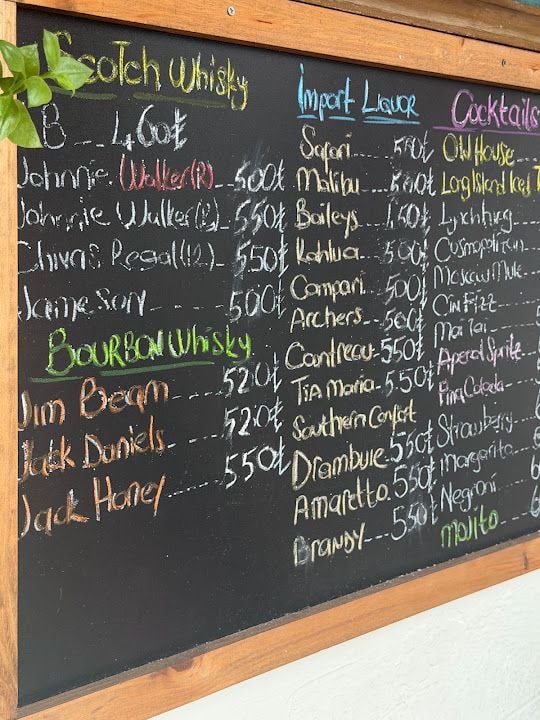 Scotch Whisky
B -- 460₺
Johnnie Walker(R) 500₺
Johnnie Walker(B) 550₺
Chivas Regal(12) 550₺
Jameson ---- 500₺
Bourbon Whisky
Jim Beam ---- 520₺
Jack Daniels ---- 520₺
Jack Honey ---- 550₺
Import Liquor
Safari ---
Malibu ---
Baileys ---
Kahlua --- 500₺
Campari -- 500₺
Archers --- 500₺
Contreau -- 550₺
Tia Maria -- 550₺
Southern Confort
Drambuie -- 550₺
Amaretto -- 550₺
Brandy --- 550₺
Cocktails
Old House
Long Island Iced T
Lynchburg
Cosmopolitan
Moscow Mule
Gin Fizz
Mai Tai
Aperol Spritz
Pina Colada
Strawberry
Margarita
Negroni
Mojito